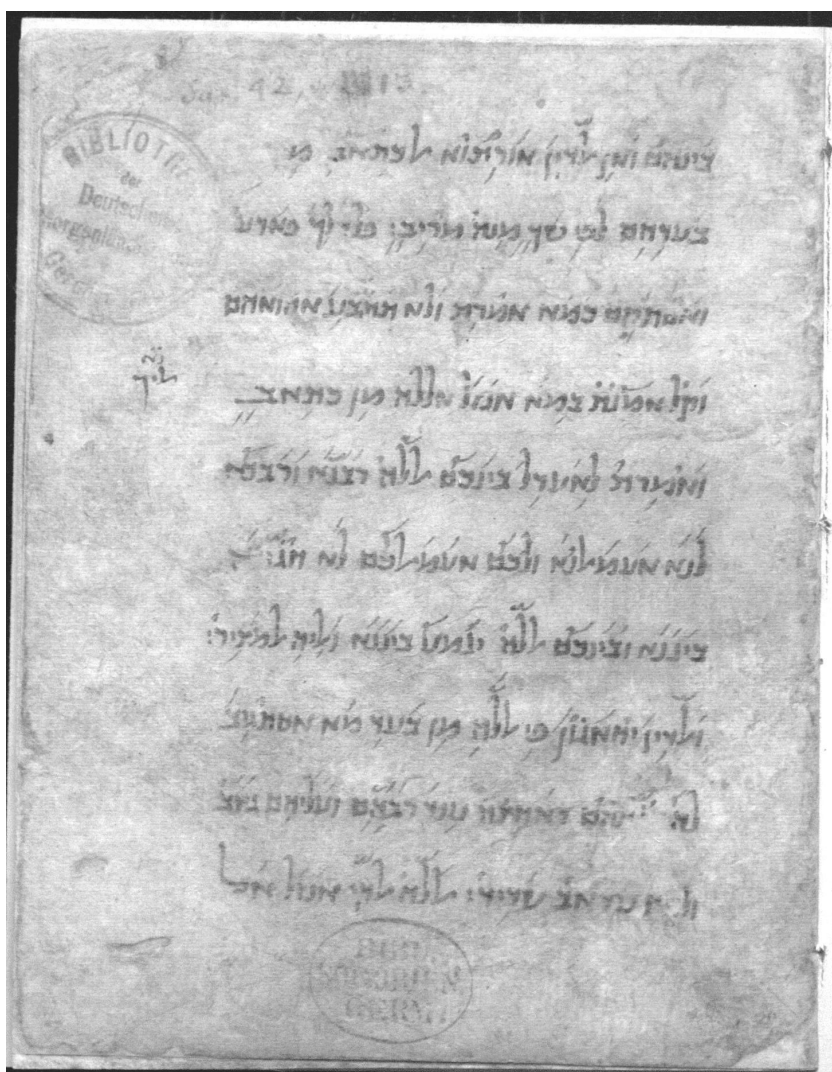 Sur. 42, v. 13
BIBLIOTHEK
der
Deutschen
Morgenländischen
Gesell
בינהם ואן ﭏדין אורתוא ﭏכתאב מן
בעדהם לפי שך מנה מריב׃ פלדלך פאדע
ואסתקם כמא אמרת ולא תתבע אהואהם
וקל אמנת במא אנזל ﭏלה מן כתאב
ואמרת לאעדל בינכם ﭏלה רבנא ורבכם
לנא אעמאלנא ולכם אעמאלכם לא חגה
ביננא ובינכם ﭏלה יגמע ביננא וﭏיה ﭏמציר׃
וﭏדין יחאגון פי ﭏלה מן בעד מא אסתגיב
לה חגתהם דאחצה ענד רבהם ועליהם
עדאב שדיד׃ ﭏלה ﭏדי אנזל